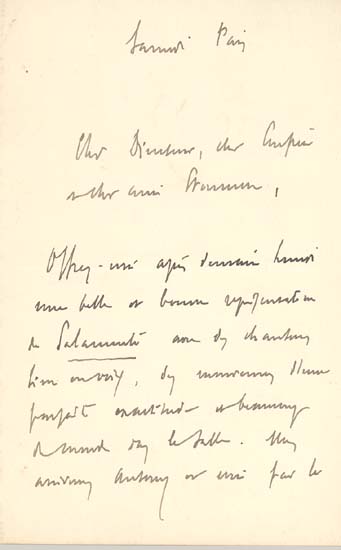 Samedi Paris
Cher Directeur, cher Confrère
et cher ami
Offrez-moi après demain lundi
une belle et bonne représentation
de Salammbô avec des chanteurs
bien en voix, des musiciens d'une
parfaite exactitude et beaucoup
de monde dans la salle. Nous
arriverons et moi par le